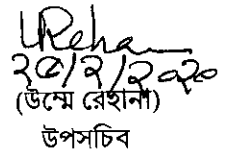 UReha
২৫/২/২০২০
(উম্মে রেহানা)
উপসচিব